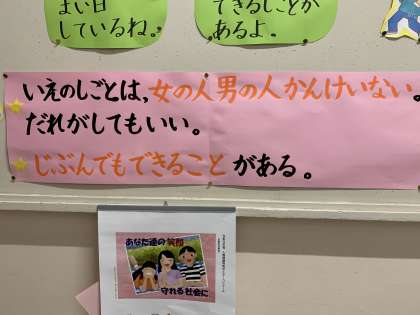 まい日
しているね。
できるしごとが
あるよ。
いえのしごとは、女の人男の人かんけいない。
だれがしてもいい。
じぶんでもできること がある。
あなた達の笑顔
守れる社会に